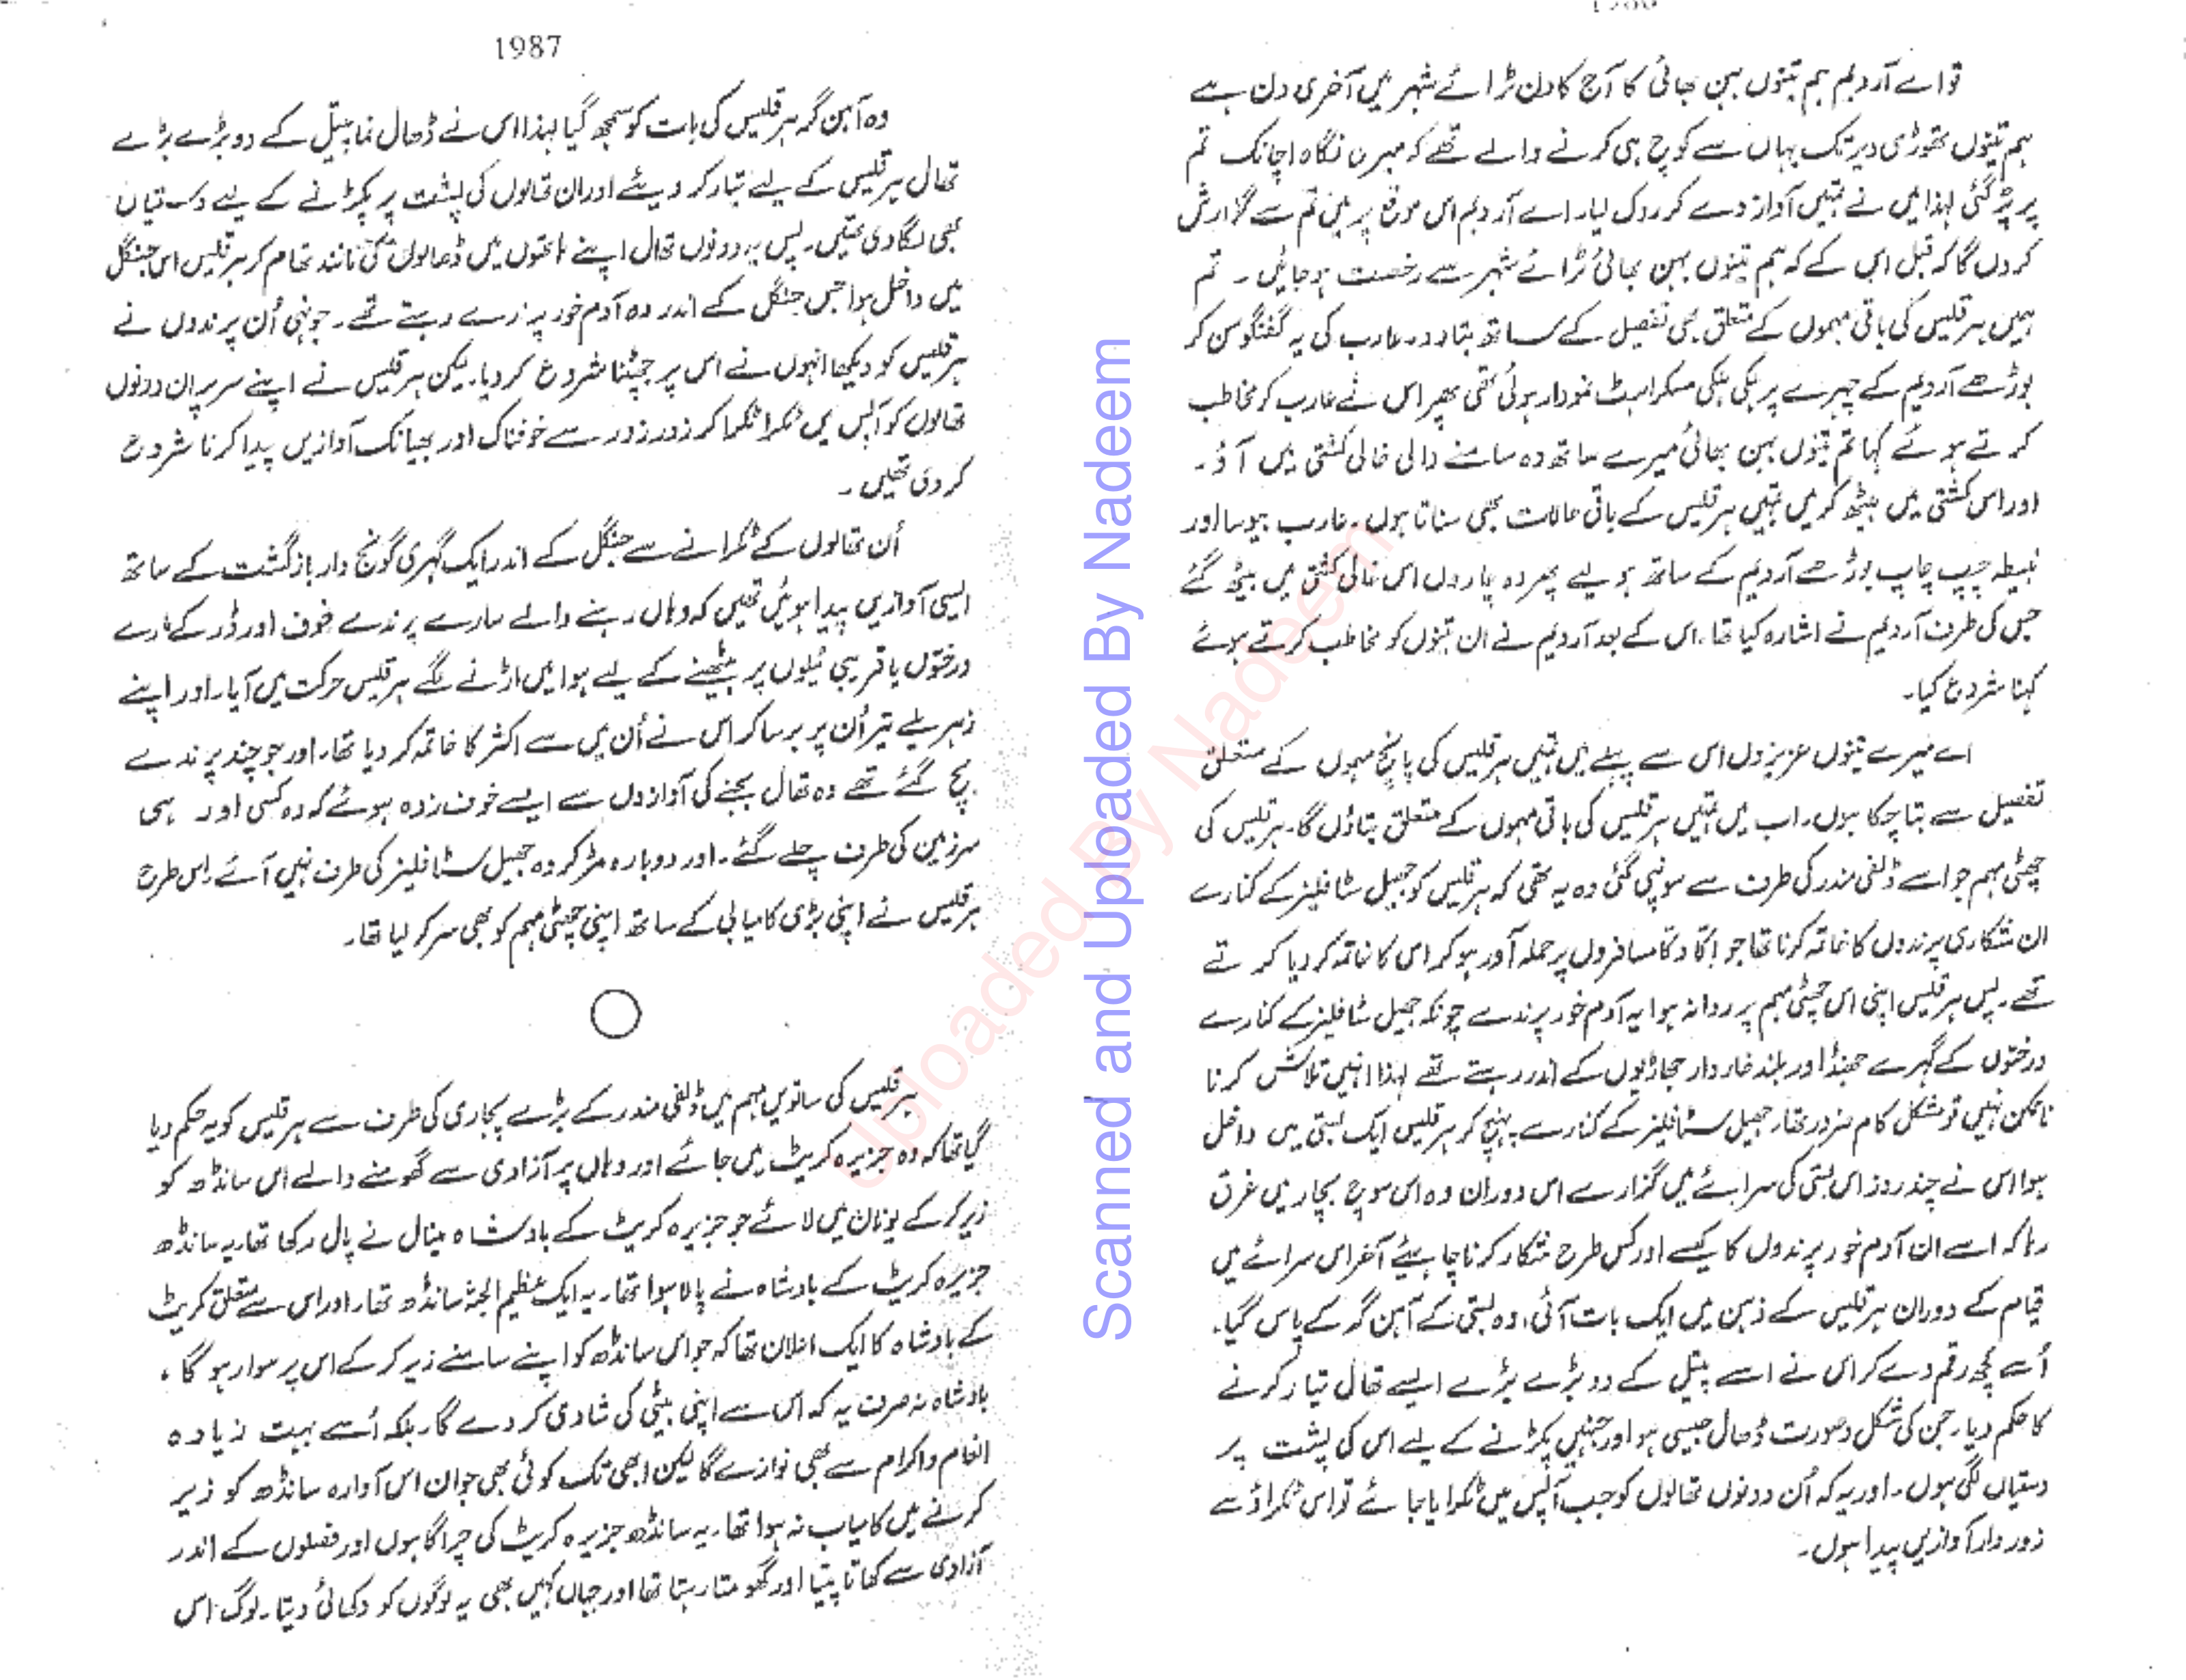 تو اے آردیم ہم تینوں بہن بھائی کا آج کا دن ٹرائے شہر میں آخری دن ہے
ہم تینوں تھوڑی دیر تک یہاں سے کوچ ہی کرنے والے تھے کہ میری نگاہ اچانک تم
پر پڑ گئی لہذا میں نے تمہیں آواز دے کر روک لیا۔ اے آردیم اس موقع پر میں تم سے گزارش
کروں گا کہ قبل اس کے کہ ہم تینوں بہن بھائی ٹرائے شہر سے رخصت ہو جائیں ۔ تم
ہمیں ہرقلیس کی باقی مہموں کے متعلق بھی تفصیل کے ساتھ بتا دو۔ عارب کی یہ گفتگو سن کر
بوڑھے آردیم کے چہرے پر ہلکی ہلکی مسکراہٹ نمودار ہوئی تھی پھر اس نے عارب کو مخاطب
کرتے ہوئے کہا تم تینوں بہن بھائی میرے ساتھ وہ سامنے والی خالی کشتی میں آؤ۔
اور اس کشتی میں بیٹھ کر میں تمہیں ہرقلیس کے باقی حالات بھی سناتا ہوں۔ عارب بیوسا اور
نبیطہ چپ چاپ بوڑھے آردیم کے ساتھ ہو لیے پھر وہ چاروں اس خالی کشتی میں بیٹھ گئے
جس کی طرف آردیم نے اشارہ کیا تھا۔ اس کے بعد آردیم نے ان تینوں کو مخاطب کرتے ہوئے
کہنا شروع کیا۔
اے میرے تینوں عزیزوں اس سے پہلے میں تمہیں ہرقلیس کی پانچ مہموں کے متعلق
تفصیل سے بتا چکا ہوں۔ اب میں تمہیں ہرقلیس کی باقی مہموں کے متعلق بتاؤں گا۔ ہرقلیس کی
چھٹی مہم جو اسے ڈلفی مندر کی طرف سے سونپی گئی وہ یہ تھی کہ ہرقلیس کو جھیل سٹافلیز کے کنارے
ان شکاری پرندوں کا خاتمہ کرنا تھا جو اکا دکا مسافروں پر حملہ آور ہو کر اس کا خاتمہ کر دیا کرتے
تھے۔ پس ہرقلیس اپنی اس چھٹی مہم پر روانہ ہوا یہ آدم خور پرندے چونکہ جھیل سٹافلیز کے کنارے
درختوں کے گہرے جھنڈ اور بلند خاردار جھاڑیوں کے اندر رہتے تھے لہذا انہیں تلاش کرنا
ناممکن نہیں تو مشکل کام ضرور تھا۔ جھیل سٹافلیز کے کنارے پہنچ کر ہرقلیس ایک بستی میں داخل
ہوا اس نے چند روز اس بستی کی سرائے میں گزارے اس دوران وہ اسی سوچ بچار میں غرق
رہا کہ اسے ان آدم خور پرندوں کا کیسے اور کس طرح شکار کرنا چاہیئے آخر اس سرائے میں
قیام کے دوران ہرقلیس کے ذہن میں ایک بات آئی، وہ بستی کے آہن گر کے پاس گیا۔
اُسے کچھ رقم دے کر اس نے اسے پیتل کے دو بڑے بڑے ایسے تھال تیار کرنے
کا حکم دیا۔ جن کی شکل و صورت ڈھال جیسی ہو اور جنہیں پکڑنے کے لیے اس کی پشت پر
دستیاں لگی ہوں۔ اور یہ کہ اُن دونوں تھالوں کو جب آپس میں ٹکرایا جائے تو اس ٹکراؤ سے
زور دار آوازیں پیدا ہوں۔
1987
وہ آہن گر ہرقلیس کی بات کو سمجھ گیا لہذا اس نے ڈھال نما پیتل کے دو بڑے بڑے
تھال ہرقلیس کے لیے تیار کر دیئے اور ان تھالوں کی پشت پر پکڑنے کے لیے دستیاں
بھی لگا دی تھیں۔ پس یہ دونوں تھال اپنے ہاتھوں میں ڈھالوں کی مانند تھام کر ہرقلیس اس جنگل
میں داخل ہوا جس جنگل کے اندر وہ آدم خور پرندے رہتے تھے۔ جونہی اُن پرندوں نے
ہرقلیس کو دیکھا انہوں نے اس پر جھپٹنا شروع کر دیا۔ لیکن ہرقلیس نے اپنے سر پر ان دونوں
تھالوں کو آپس میں ٹکرا ٹکرا کر زور زور سے خوفناک اور بھیانک آوازیں پیدا کرنا شروع
کر دی تھیں۔
اُن تھالوں کے ٹکرانے سے جنگل کے اندر ایک گہری گونج دار بازگشت کے ساتھ
ایسی آوازیں پیدا ہوئی تھیں کہ وہاں رہنے والے سارے پرندے خوف اور ڈر کے مارے
درختوں یا قریبی ٹیلوں پر بیٹھنے کے لیے ہوا میں اڑنے لگے ہرقلیس حرکت میں آیا۔ اور اپنے
زہریلے تیر اُن پر برسا کر اس نے اُن میں سے اکثر کا خاتمہ کر دیا تھا۔ اور جو چند پرندے
بچ گئے تھے وہ تھال بجنے کی آوازوں سے ایسے خوف زدہ ہوئے کہ وہ کسی اور ہی
سرزمین کی طرف چلے گئے۔ اور دوبارہ مڑ کر وہ جھیل سٹافلیز کی طرف نہیں آئے۔ اس طرح
ہرقلیس نے اپنی بڑی کامیابی کے ساتھ اپنی چھٹی مہم کو بھی سر کر لیا تھا۔
ہرقلیس کی ساتویں مہم میں ڈلفی مندر کے بڑے پجاری کی طرف سے ہرقلیس کو یہ حکم دیا
گیا تھا کہ وہ جزیرہ کریٹ میں جائے اور وہاں پر آزادی سے گھومنے والے اس سانڈھ کو
زیر کر کے یونان میں لائے جو جزیرہ کریٹ کے بادشاہ مینال نے پال رکھا تھا۔ یہ سانڈھ
جزیرہ کریٹ کے بادشاہ نے پالا ہوا تھا۔ یہ ایک عظیم الجثہ سانڈھ تھا۔ اور اس سے متعلق کریٹ
کے بادشاہ کا ایک اعلان تھا کہ جو اس سانڈھ کو اپنے سامنے زیر کر کے اس پر سوار ہو گا،
بادشاہ نہ صرف یہ کہ اس سے اپنی بیٹی کی شادی کر دے گا۔ بلکہ اُسے بہت زیادہ
انعام و اکرام سے بھی نوازے گا لیکن ابھی تک کوئی بھی جوان اس آوارہ سانڈھ کو زیر
کرنے میں کامیاب نہ ہوا تھا۔ یہ سانڈھ جزیرہ کریٹ کی چراگاہوں اور فصلوں کے اندر
آزادی سے کھاتا پیتا اور گھومتا رہتا تھا اور جہاں کہیں بھی یہ لوگوں کو دکھائی دیتا۔ لوگ اس
Scanned and Uploaded By Nadeem
Uploaded By Nadeem